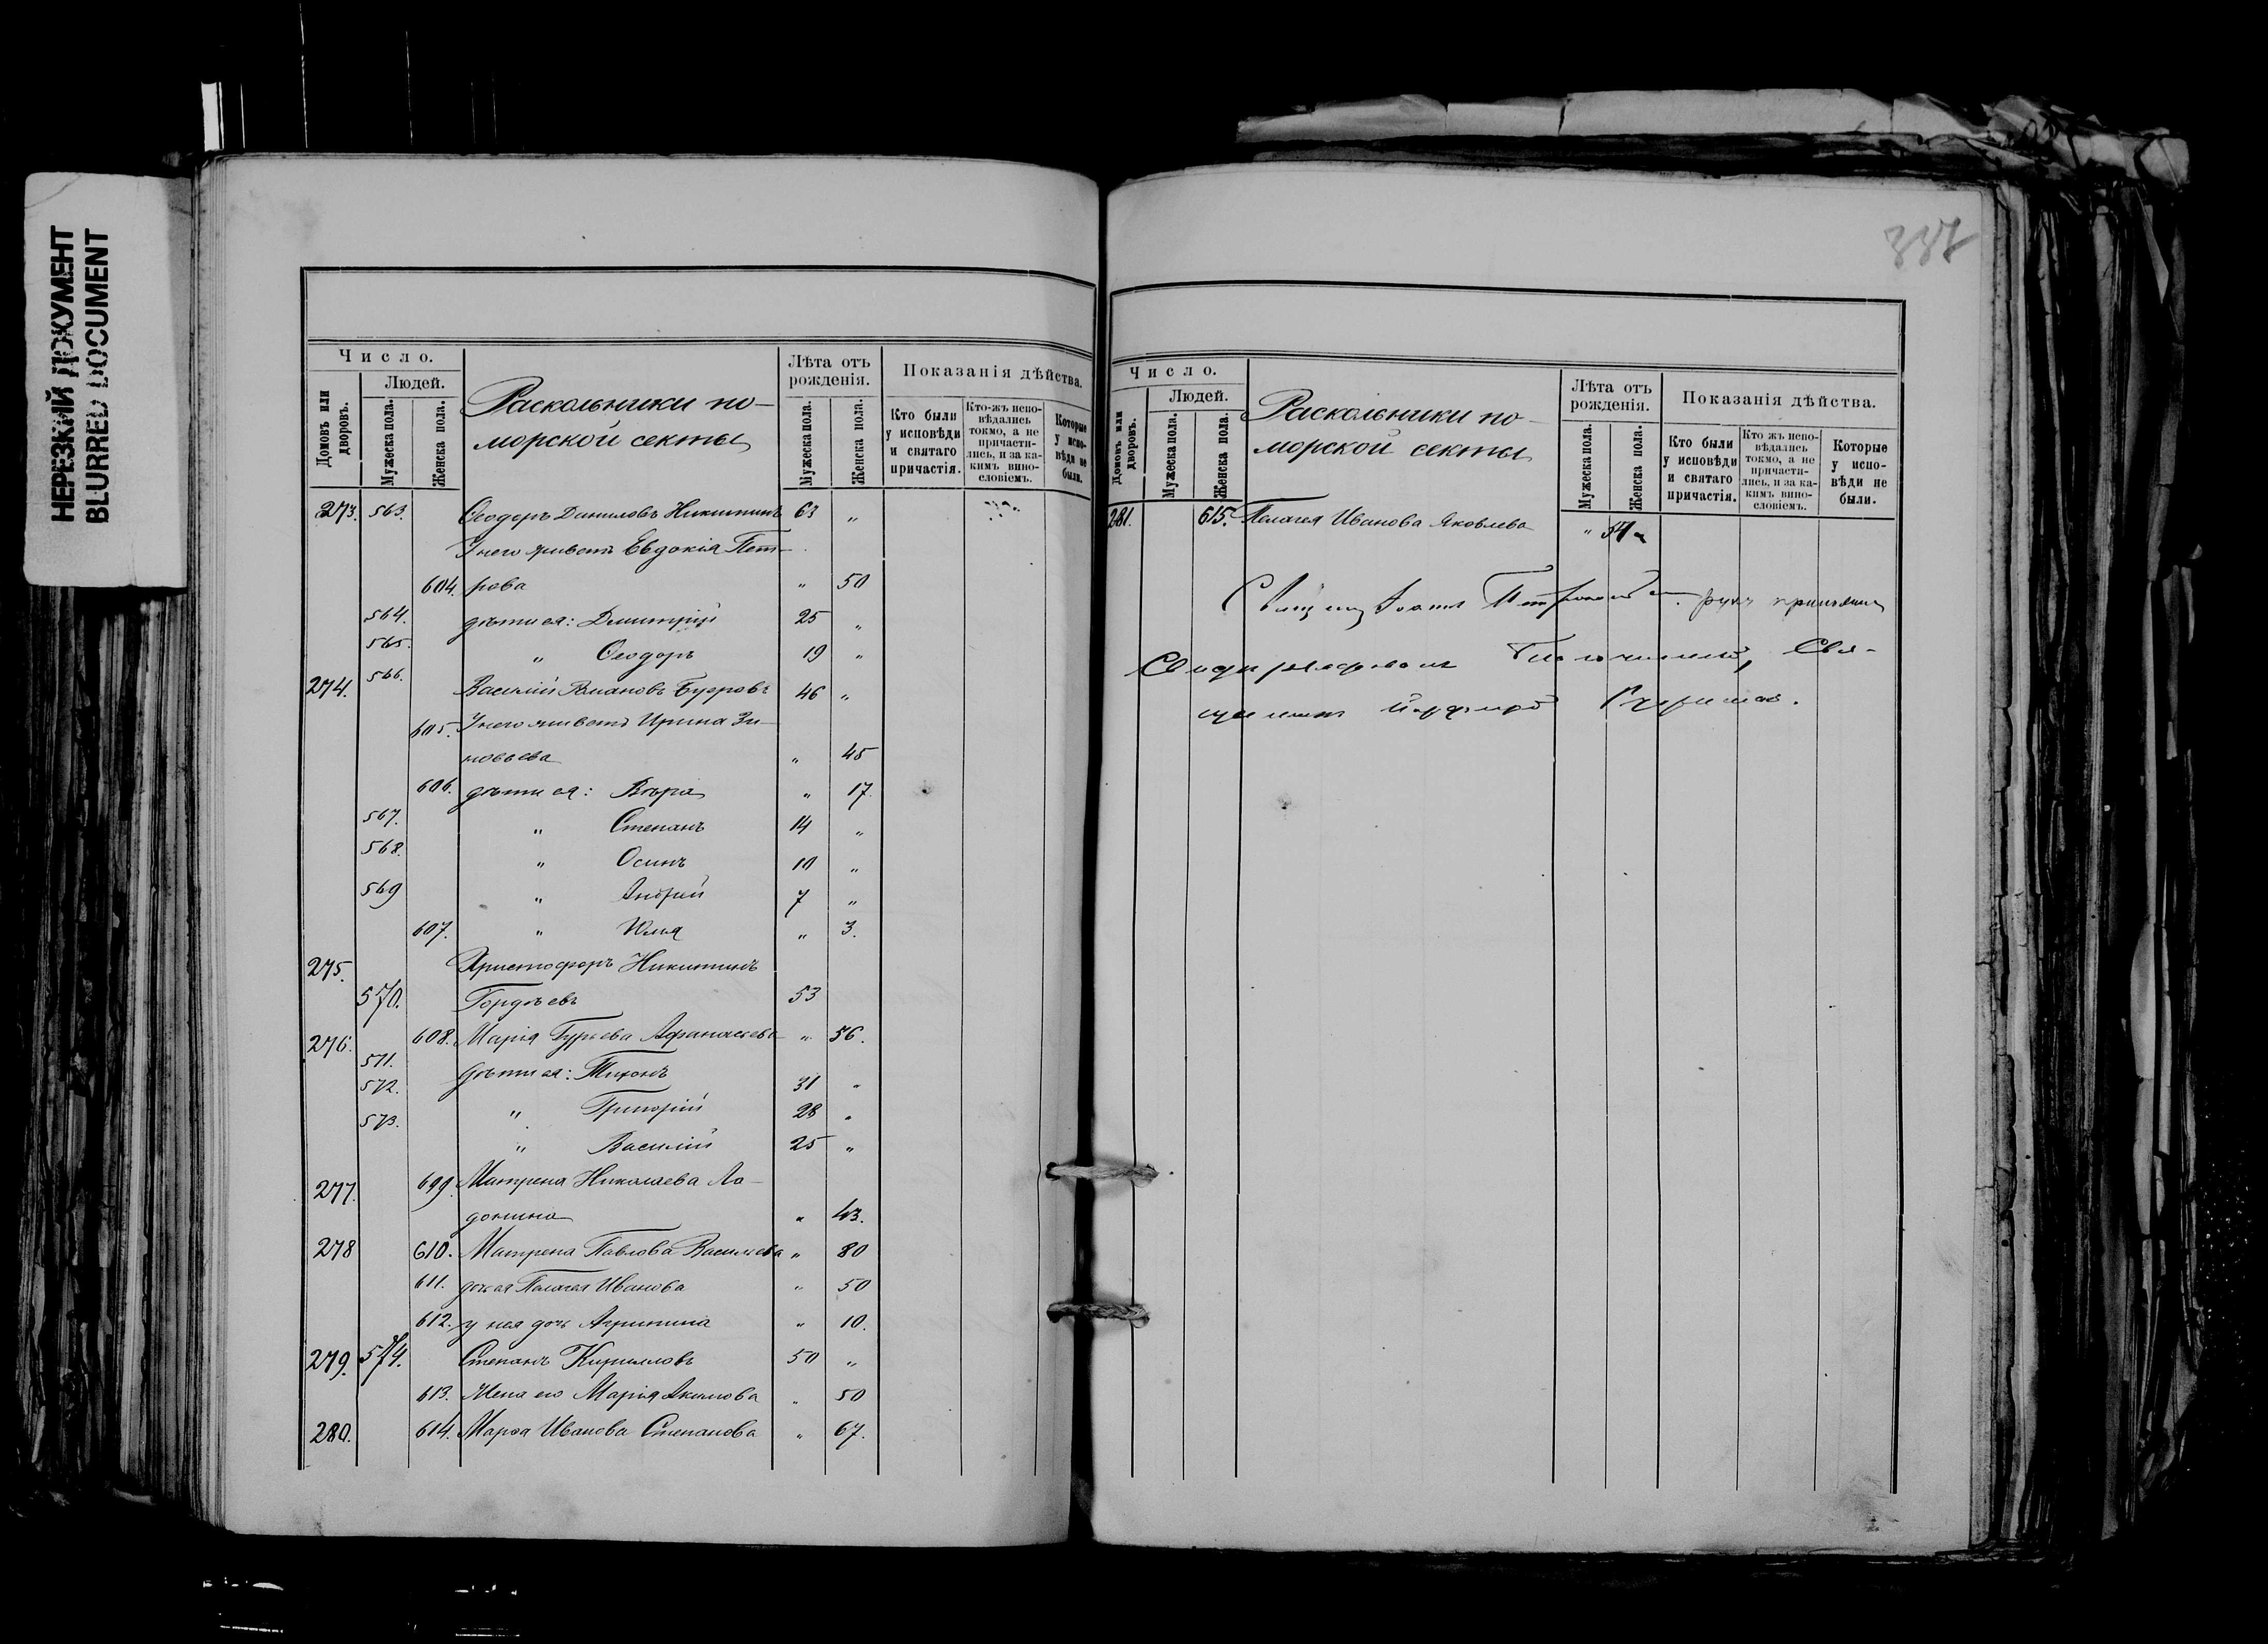 НЕРЕЗКИЙ ДОКУМЕНТ
BLURRED DOCUMENT
Число.
Домовъ или дворовъ.
Людей.
Мужеска пола.
Женска пола.
Раскольники по-
морской секты
Лѣта отъ рожденія.
Мужеска пола.
Женска пола.
Показанія дѣйства.
Кто были у исповѣди и святаго причастія.
Кто-жъ испо-вѣдались токмо, а не причасти-лись, и за ка-кимъ вино-словіемъ.
Которые у испо-вѣди не были.
273. 563. Ѳеодоръ Даниловъ Никитинъ 63 „
У него живетъ Евдокія Пет-
604. рова „ 50
564. дѣти ея: Димитрій 25 „
565. „ Ѳеодоръ 19 „
274. 566. Василій Буеровъ 46 „
605. У него живетъ Ирина Зи-
новьева „ 45
606. дѣти ея: Вѣра „ 17.
567. „ Степанъ 14 „
568. „ Осипъ 10 „
569 „ Андрей 7 „
607. „ Юлія „ 3.
275. Христофоръ Никитинъ
570. Гордѣевъ 53
276. 608. Марія Гурьева Афанасьева „ 56.
571. дѣти ея: Тихонъ 31 „
572. „ Григорій 28 „
573. „ Василій 25 „
277. 609. Матрена Николаева Ла-
донина „ 43.
278 610. Матрена Павлова Васильева „ 80
611. дочь ея Пелагея Иванова „ 50
612. у нея дочь Агрипина „ 10.
279. 574. Степанъ Кирилловъ 50 „
613. Жена его Марія Акимова „ 50
280. 614. Марѳа Иванова Степанова „ 67.
337
Число.
Домовъ или дворовъ.
Людей.
Мужеска пола.
Женска пола.
Раскольники по-
морской секты
Лѣта отъ рожденія.
Мужеска пола.
Женска пола.
Показанія дѣйства.
Кто были у исповѣди и святаго причастія.
Кто жъ испо-вѣдались токмо, а не причасти-лись, и за ка-кимъ вино-словіемъ.
Которые у испо-вѣди не были.
281. 615. Пелагея Иванова Яковлева „
руку приложилъ
Благочинный, Свя-
щенникъ